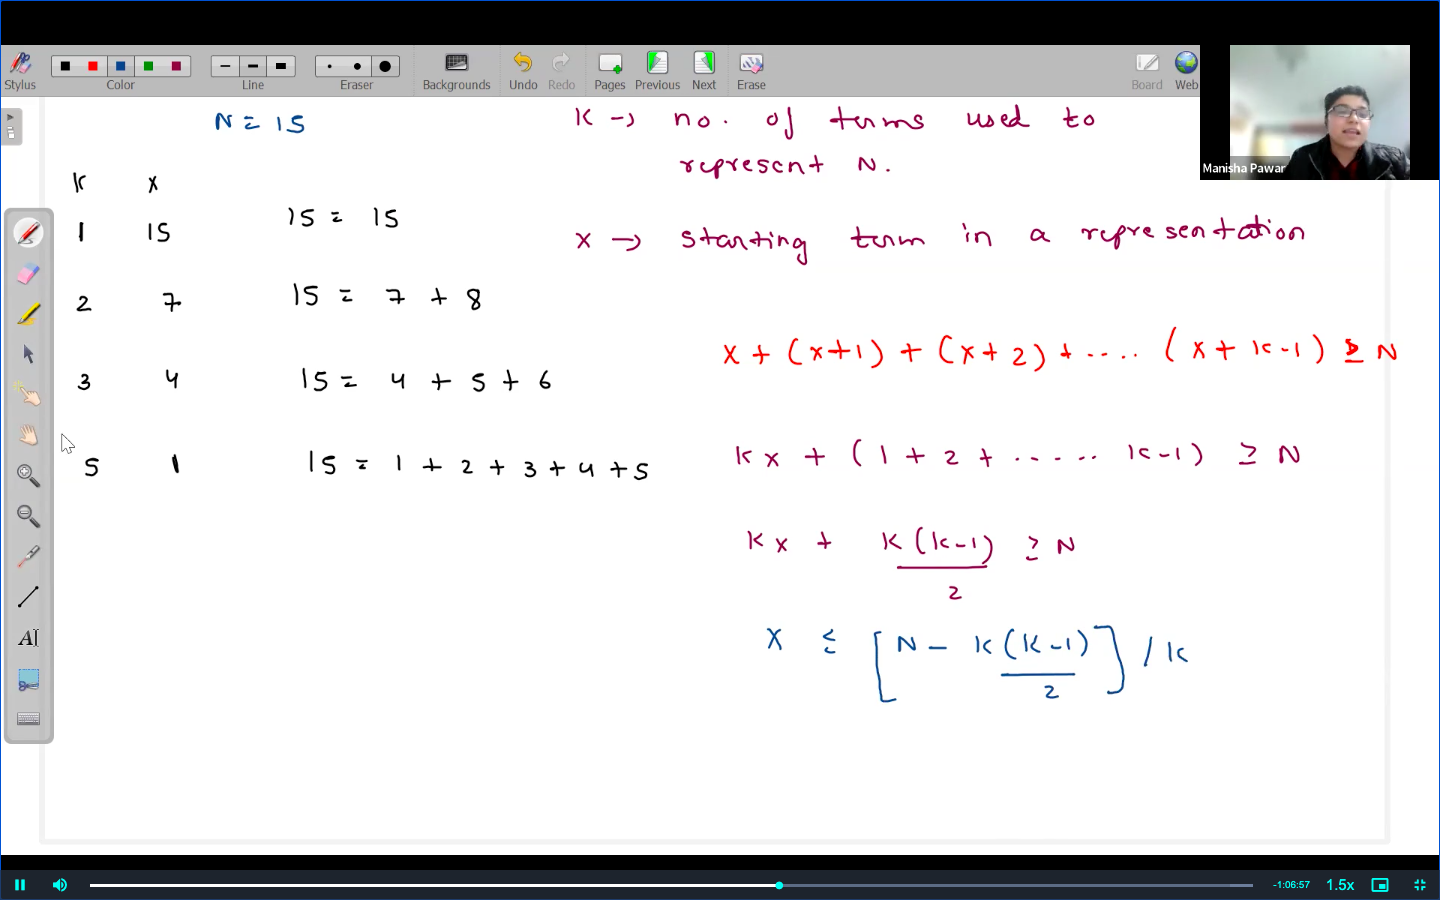 Stylus
Color
Line
Eraser
Backgrounds
Undo
Redo
Pages
Previous
Next
Erase
Board
Web
Manisha Pawar
N = 15
K x
1 15 15 = 15
2 7 15 = 7 + 8
3 4 15 = 4 + 5 + 6
5 1 15 = 1 + 2 + 3 + 4 + 5
K → no. of terms used to
represent N.
x → starting term in a representation
x + (x+1) + (x+2) + .... (x + k-1) ≥ N
kx + (1 + 2 + ..... k-1) ≥ N
kx + k(k-1)/2 ≥ N
x ≤ [N - k(k-1)/2] / k
AI
-1:06:57
1.5x